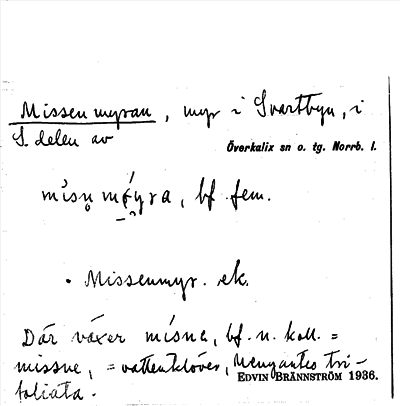 Missenmyran, myr i Svartbyn, i
S. delen av
Överkalix sn o. tg. Norrb. l.
bf. fem.
• Missenmyr. ek.
Där växer mísne, bf. n. koll. =
missne, = vattenklöver, Menyantes tri-
foliata.
EDVIN BRÄNNSTRÖM 1936.